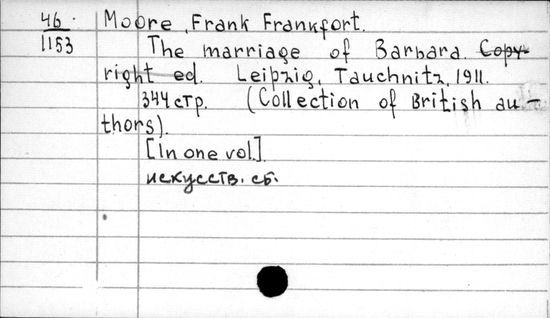 46.
1153
Moore, Frank Frankfort.
The marriage of Barbara. Copy-
right ed. Leipzig, Tauchnitz, 1911.
344 стр. (Collection of British au-
thors).
[In one vol.].
искусств. сб.